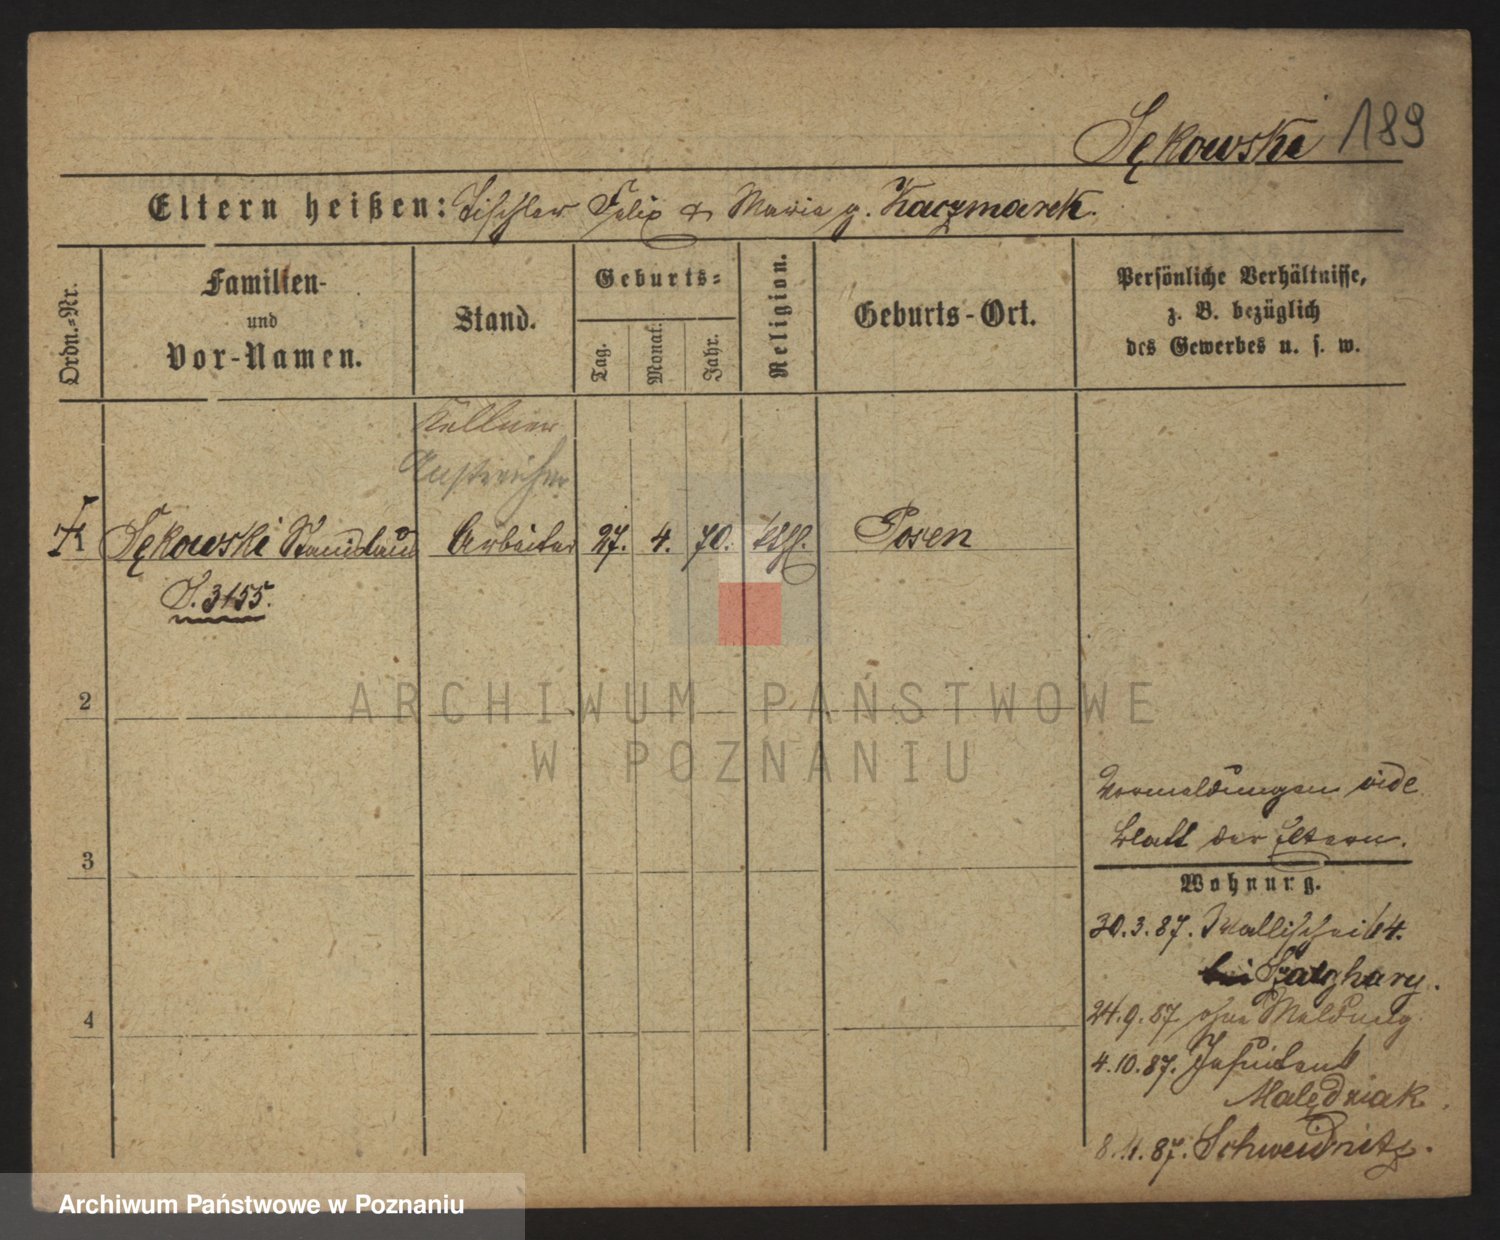 Sękowski 189
Eltern heißen: Tischler Felix & Marie g. Kaczmarek.
Ordn.-Nr.
Familien-
und
Vor-Namen.
Stand.
Geburts-
Tag.
Monat.
Jahr.
Religion.
Geburts-Ort.
Persönliche Verhältnisse,
z. B. bezüglich
des Gewerbes u. s. w.
Kellner
Anstreicher
Sękowski Stanislaus Arbeiter 27. 4. 70. kthl. Posen
S. 3155.
2
ARCHIWUM PAŃSTWOWE
W POZNANIU
Vormeldungen vide
Blatt der Eltern.
3
Wohnung.
30.3.87. Wallischei 64.
bei
4
24.9.87 ohne Meldung.
4.10.87. Jesuitenst
8.11.87. Schweidnitz.
Archiwum Państwowe w Poznaniu